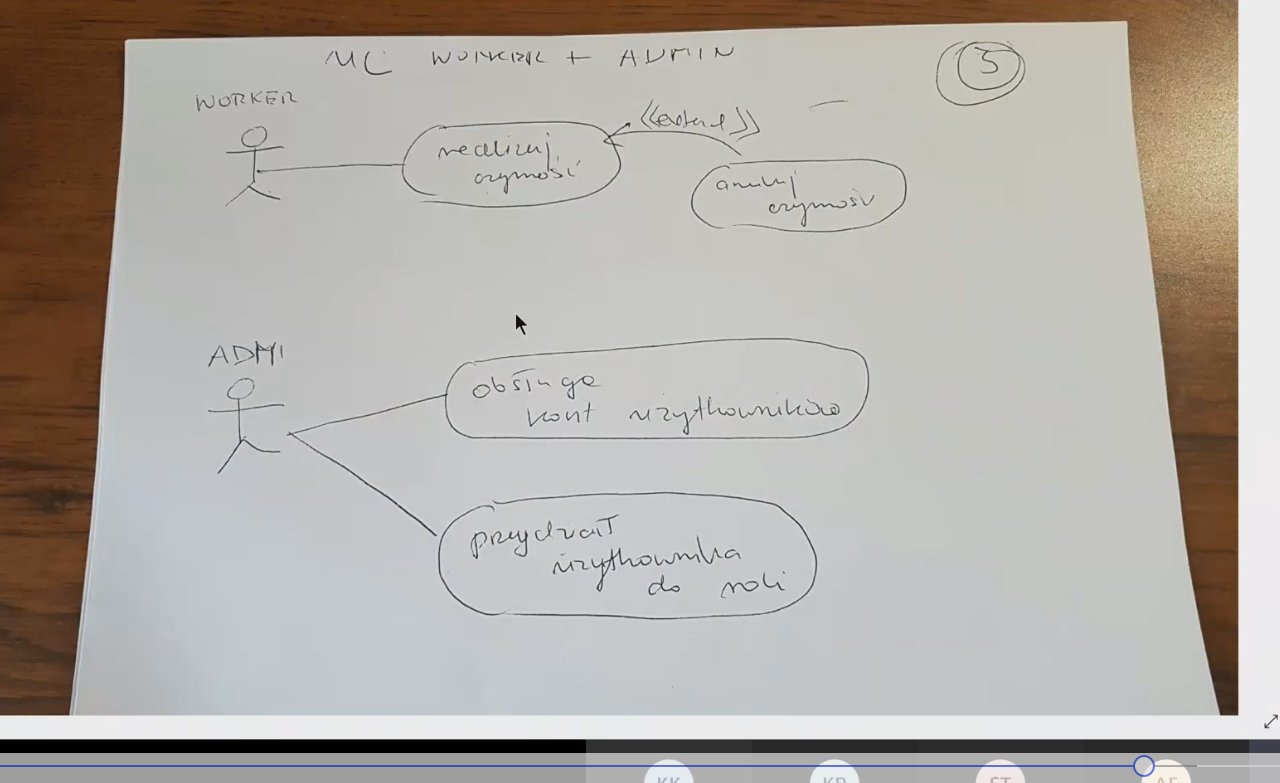 UC WORKER + ADMIN
5
WORKER
<<extend>>
realizuj
czynność
anuluj
czynność
ADMI
obsługa
kont użytkowników
przydział
użytkownika
do roli
KK
KP
ST
AF